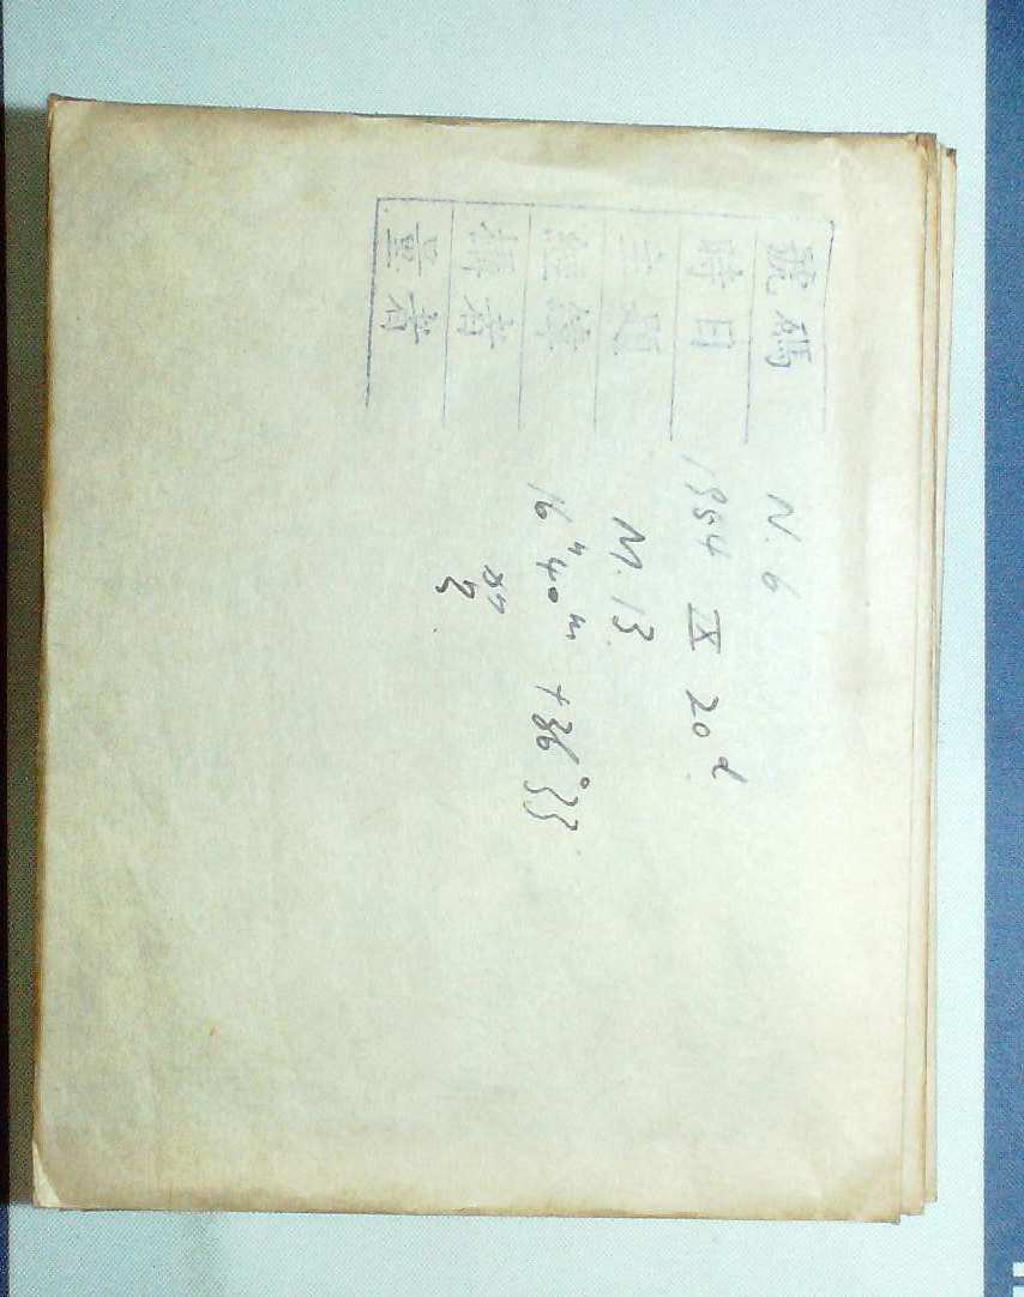 號碼 N. 6
時日 1954 IX 20d
主題 M. 13.
經緯 16h 40m +36°33
攝者
量者